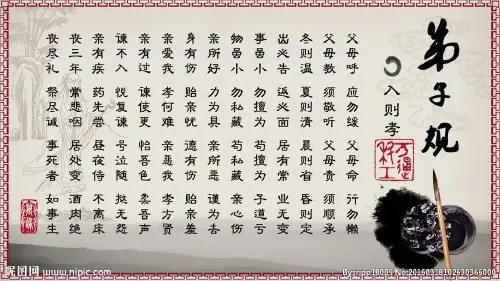 弟子规
入则孝
父母呼 应勿缓 父母命 行勿懒
父母教 须敬听 父母责 须顺承
冬则温 夏则清 晨则省 昏则定
出必告 返必面 居有常 业无变
事虽小 勿擅为 苟擅为 子道亏
物虽小 勿私藏 苟私藏 亲心伤
亲所好 力为具 亲所恶 谨为去
身有伤 贻亲忧 德有伤 贻亲羞
亲爱我 孝何难 亲恶我 孝方贤
亲有过 谏使更 怡吾色 柔吾声
谏不入 悦复谏 号泣随 挞无怨
亲有疾 药先尝 昼夜侍 不离床
丧三年 常悲咽 居处变 酒肉绝
丧尽礼 祭尽诚 事死者 如事生
昵图网 www.nipic.com
By:tripp18005 No:20160318102630366000